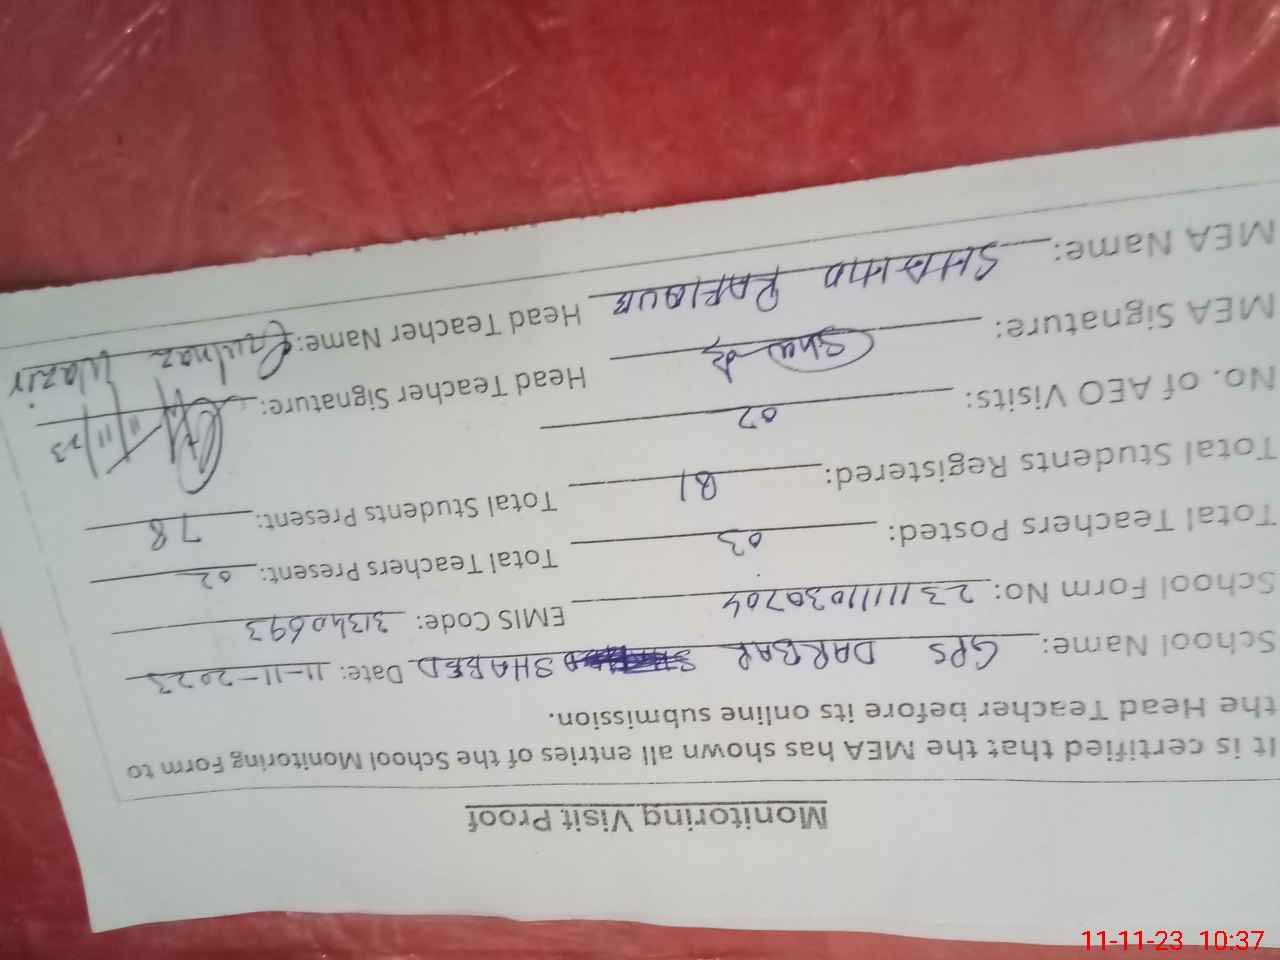 Monitoring Visit Proof
It is certified that the MEA has shown all entries of the School Monitoring Form to
the Head Teacher before its online submission.
School Name: GPS DARBAR SHAHED Date: 11-11-2023
School Form No: EMIS Code: 31340693
Total Teachers Posted: 03 Total Teachers Present: 02
Total Students Registered: 81 Total Students Present: 78
No. of AEO Visits: 02
MEA Signature: Head Teacher Signature: 11/11/23
MEA Name: SHAHID RAFIQUE Head Teacher Name: Gulnaz Wazir
11-11-23 10:37